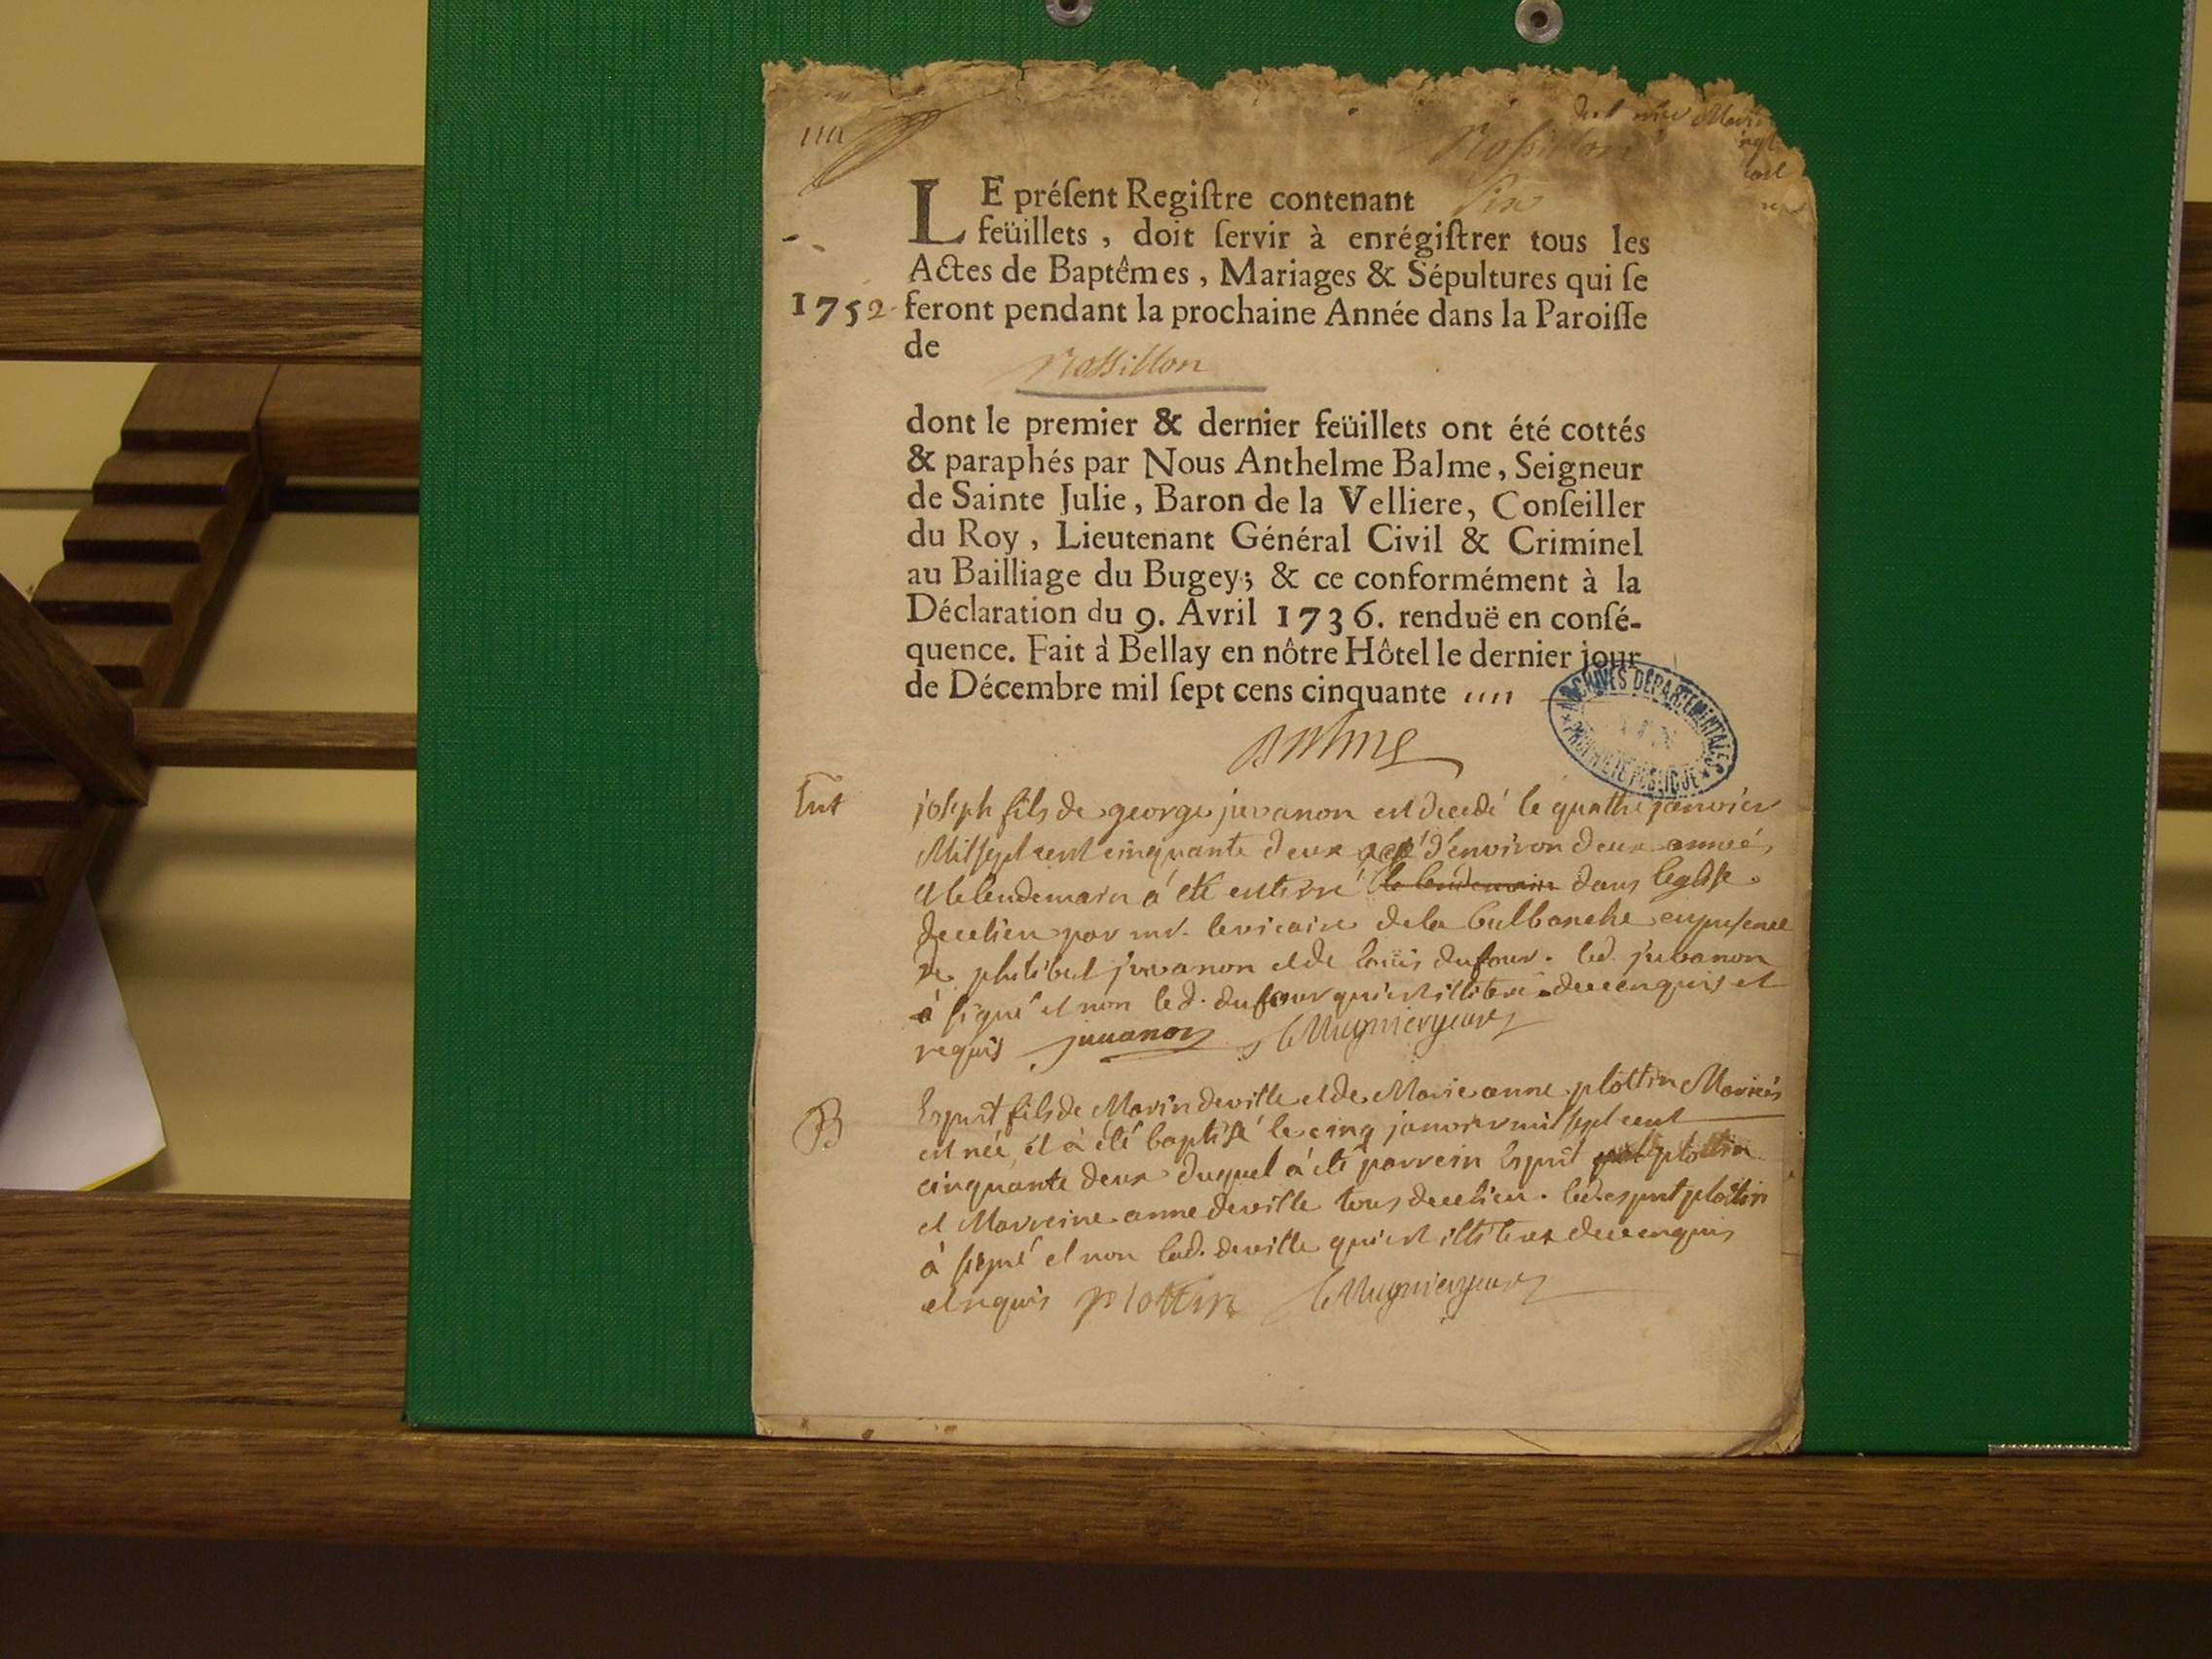 Rossillon
LE préſent Regiſtre contenant Six
feüillets, doit ſervir à enrégiſtrer tous les
Actes de Baptêmes, Mariages & Sépultures qui ſe
1752 feront pendant la prochaine Année dans la Paroiſſe
de
rossillon
dont le premier & dernier feüillets ont été cottés
& paraphés par Nous Anthelme Balme, Seigneur
de Sainte Julie, Baron de la Velliere, Conſeiller
du Roy, Lieutenant Général Civil & Criminel
au Bailliage du Bugey; & ce conformément à la
Déclaration du 9. Avril 1736. renduë en conſé-
quence. Fait à Bellay en nôtre Hôtel le dernier jour
de Décembre mil ſept cens cinquante
ARCHIVES DEPARTEMENTALES
AIN
PROPRIETE PUBLIQUE
Balme
Ent joseph fils de george juvanon est decedé le quatre janvier
Mil sept cent cinquante deux agé d'environ deux années
et le lendemain à eté enterré le lendemain dans leglise
de ce lieu par mr. le vicaire de la Bulbanche en presence
de philibert juvanon et de louis dufour. led. juvanon
à signé et non led. dufour qui est illiteré de ce enquis et
requis juuanon
B Esprit fils de Marin deville et de Marie anne plottin Mariés
est née et à été baptisé le cinq janvier mil sept cent
cinquante deux duquel à eté parrein Esprit plottin
et Marreine anne deville tous de ce lieu. led. esprit plottin
à signé et non lad. deville qui est illiteree de ce enquis
et requis plottin